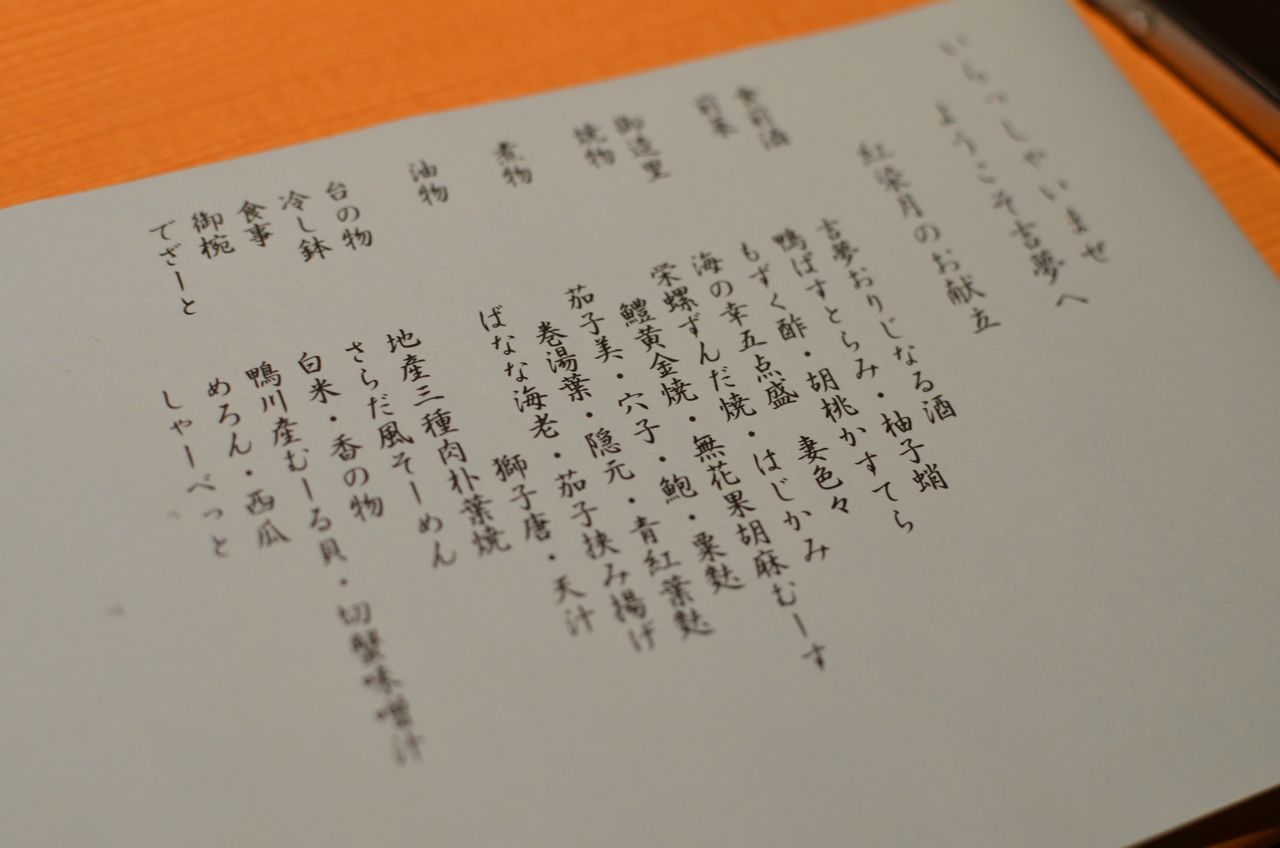 いらっしゃいませ
ようこそ吉夢へ
紅染月のお献立
食前酒 吉夢おりじなる酒
前菜 鴨ぱすとらみ・柚子蛸
もずく酢・胡桃かすてら
御造里 海の幸五点盛 妻色々
焼物 栄螺ずんだ焼・はじかみ
鱧黄金焼・無花果胡麻むーす
煮物 茄子美・穴子・鮑・粟麩
巻湯葉・隠元・青紅葉麩
油物 ばなな海老・茄子挟み揚げ
獅子唐・天汁
台の物 地産三種肉朴葉焼
冷し鉢 さらだ風そーめん
食事 白米・香の物
御椀 鴨川産むーる貝・切蟹味噌汁
でざーと めろん・西瓜
しゃーべっと